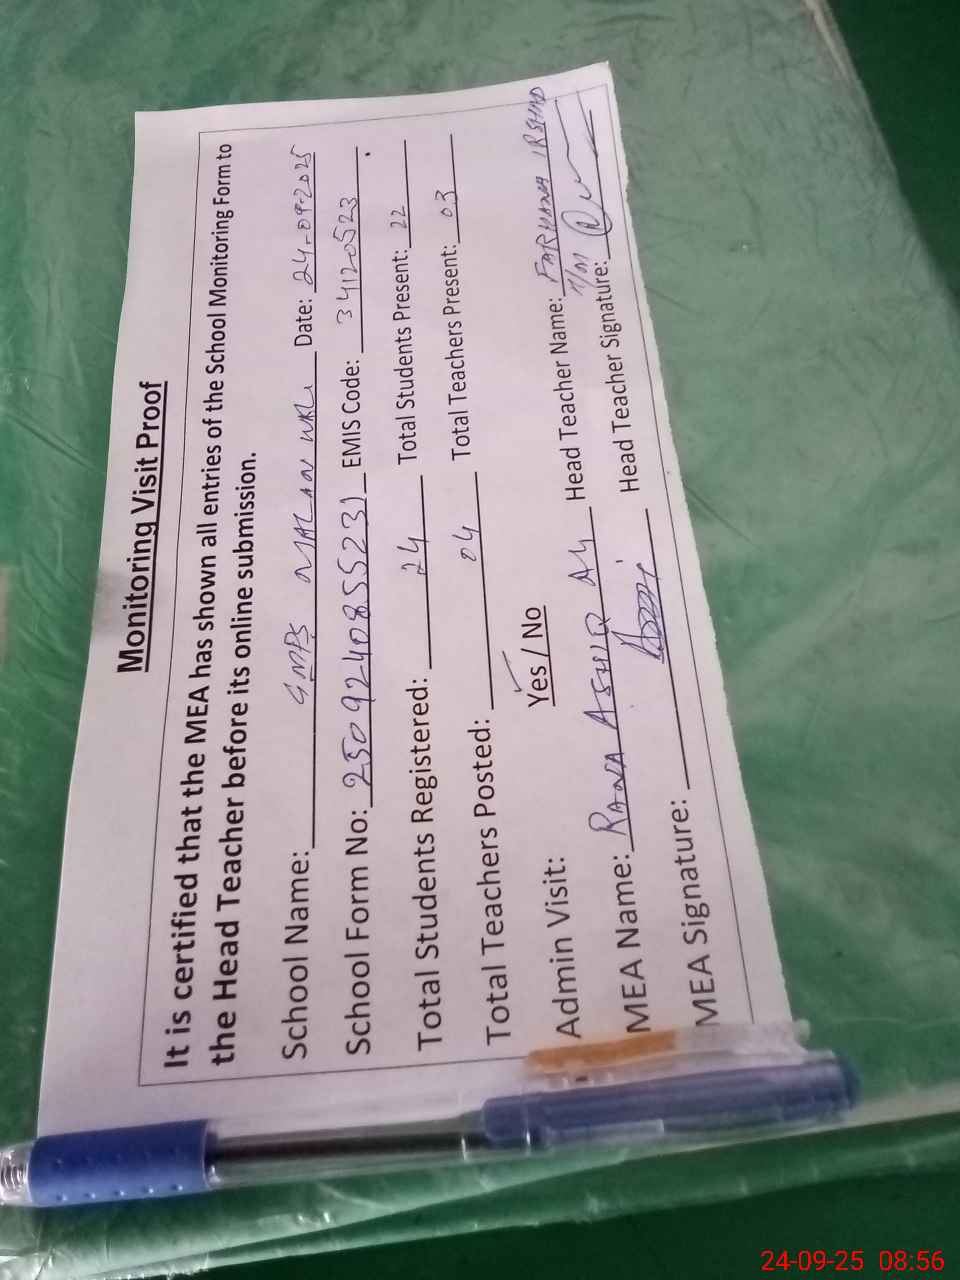 Monitoring Visit Proof
It is certified that the MEA has shown all entries of the School Monitoring Form to
the Head Teacher before its online submission.
School Name: GMPS MALAN WALI Date: 24-09-2025
School Form No: 250924085523 EMIS Code: 34120523
Total Students Registered: 24 Total Students Present: 22
Total Teachers Posted: 04 Total Teachers Present: 03
Admin Visit: Yes / No Head Teacher Name: FARHANA IRSHAD
MEA Name: RANA ASHIQ ALI Head Teacher Signature:
MEA Signature:
24-09-25 08:56